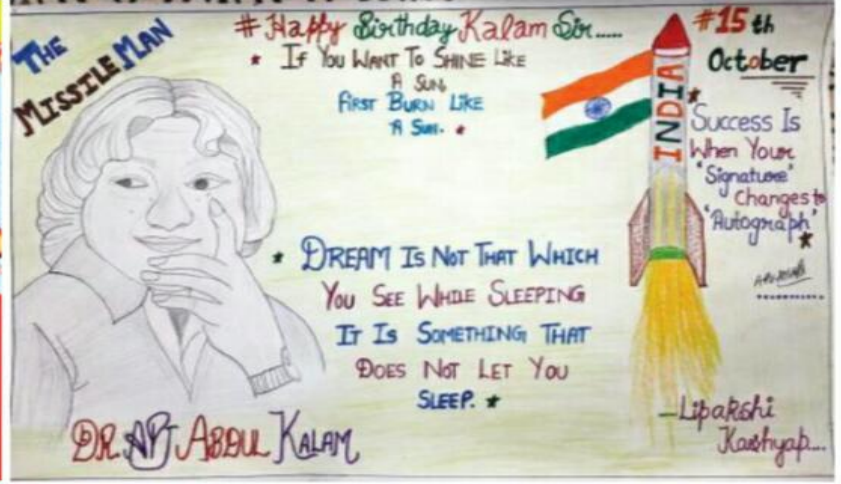 THE
MISSILE MAN
# Happy Birthday Kalam Sir.....
* IF YOU WANT TO SHINE LIKE
A SUN,
FIRST BURN LIKE
A SUN. *
#15th
October
INDIA
* Success Is
When Your
"Signature"
Changes to
'Autograph'
*
* DREAM IS NOT THAT WHICH
YOU SEE WHILE SLEEPING
IT IS SOMETHING THAT
DOES NOT LET YOU
SLEEP. *
DR. APJ ABDUL KALAM
-Lipakshi
Kashyap....